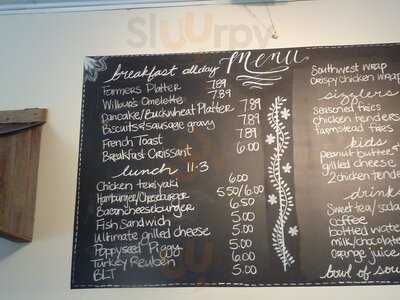 Slurrpy
Menu
breakfast all day
Farmers Platter 7.89
Wilbur's Omelette 7.89
Pancake/Buckwheat Platter 7.89
Biscuits & sausage gravy 7.89
French Toast 7.89
Breakfast Croissant 6.00
lunch 11-3
Chicken teriyaki 6.00
Hamburger/Cheeseburger 5.50/6.00
Bacon cheeseburger 6.50
Fish Sandwich 5.00
Ultimate grilled cheese 5.00
Poppyseed Piggy 5.00
Turkey Reuben 6.00
BLT 5.00
Southwest wrap
crispy chicken wrap
sizzlers
seasoned fries
chicken tenders
farmstead fries
kids
peanut butter &
grilled cheese
2 chicken tender
drinks
Sweet tea/soda
coffee
bottled water
milk/chocolate
orange juice
bowl of sou